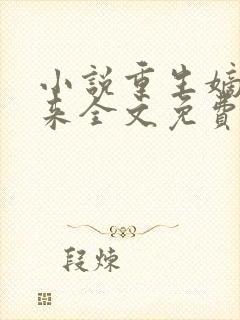 小說重生嫡
来全文免費
段炼